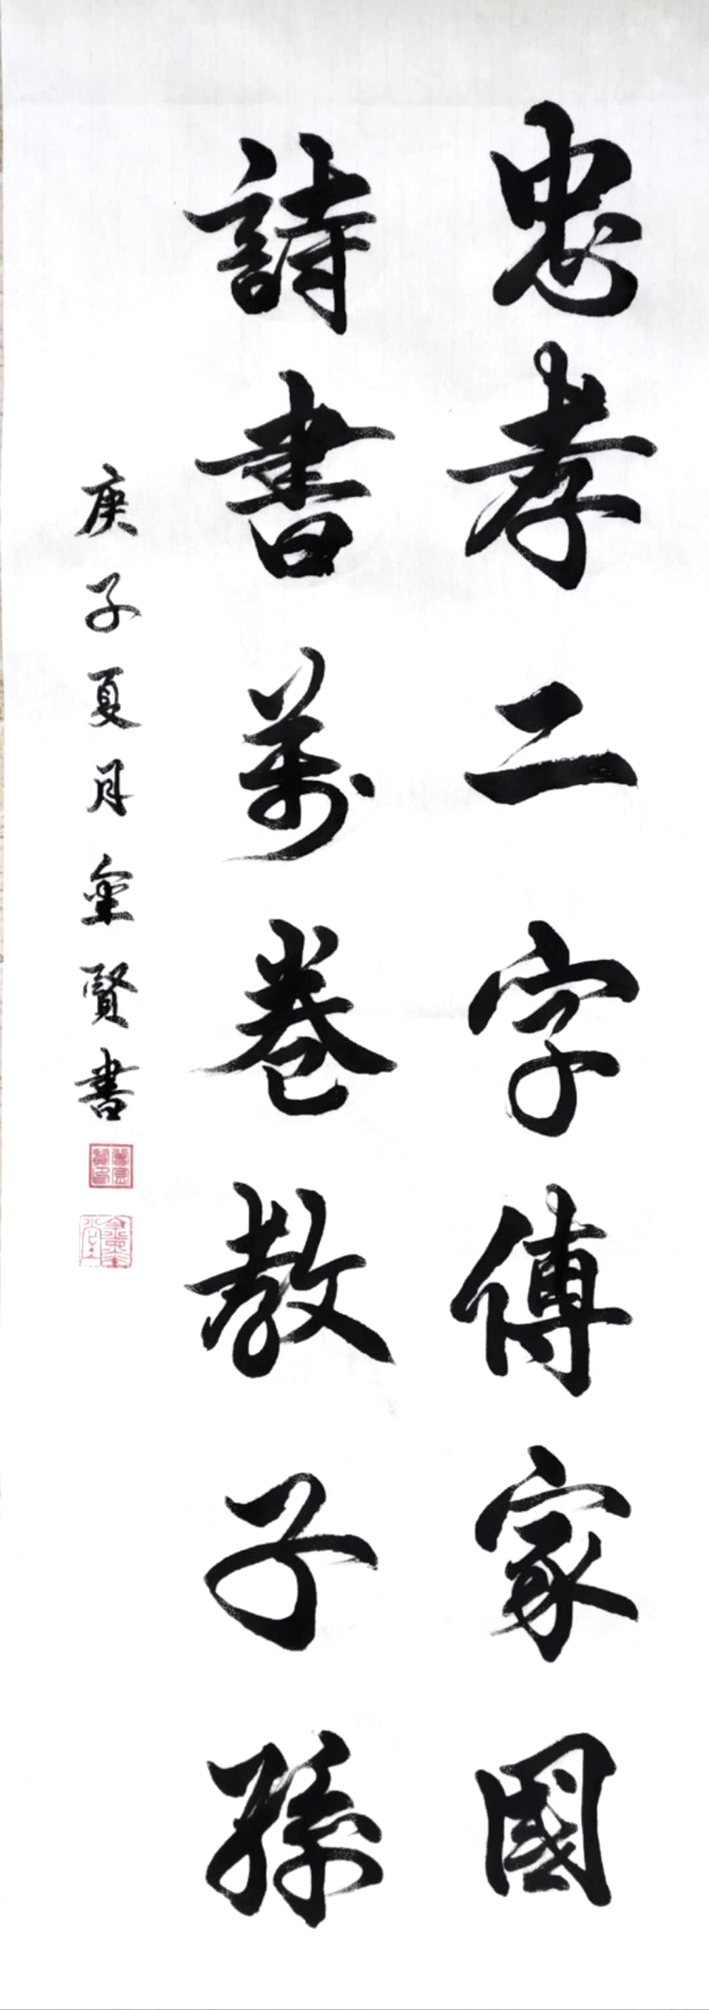 忠孝二字傳家國
詩書萬卷教子孫
庚子夏月金賢書